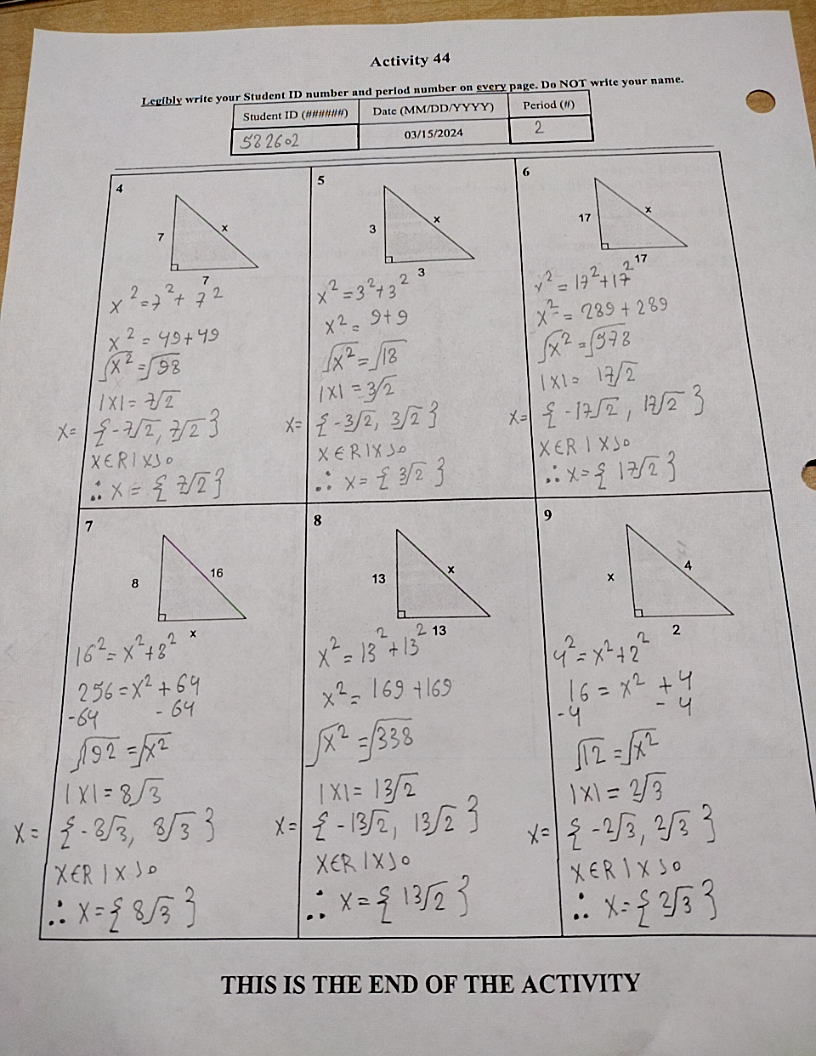 Activity 44
Legibly write your Student ID number and period number on every page. Do NOT write your name.
Student ID (######) Date (MM/DD/YYYY) Period (#)
582602 03/15/2024 2
4
7
x
7
x² = 7² + 7²
x² = 49+49
√x² = √98
|x| = 7√2
x = {-7√2, 7√2}
x∈R | x>0
∴ x = {7√2}
5
3
x
3
x² = 3²+3²
x² = 9+9
√x² = √18
|x| = 3√2
x = {-3√2, 3√2}
x∈R | x>0
∴ x = {3√2}
6
17
x
17
x² = 17²+17²
x² = 289 + 289
√x² = √578
|x| = 17√2
x = {-17√2, 17√2}
x∈R | x>0
∴ x = {17√2}
7
8
16
x
16² = x²+8²
256 = x² + 64
-64 - 64
√192 = √x²
|x| = 8√3
x = {-8√3, 8√3}
x∈R | x>0
∴ x = {8√3}
8
13
x
13
x² = 13²+13²
x² = 169 +169
√x² = √338
|x| = 13√2
x = {-13√2, 13√2}
x∈R | x>0
∴ x = {13√2}
9
x
4
2
4² = x²+2²
16 = x² + 4
-4 - 4
√12 = √x²
|x| = 2√3
x = {-2√3, 2√3}
x∈R | x>0
∴ x = {2√3}
THIS IS THE END OF THE ACTIVITY